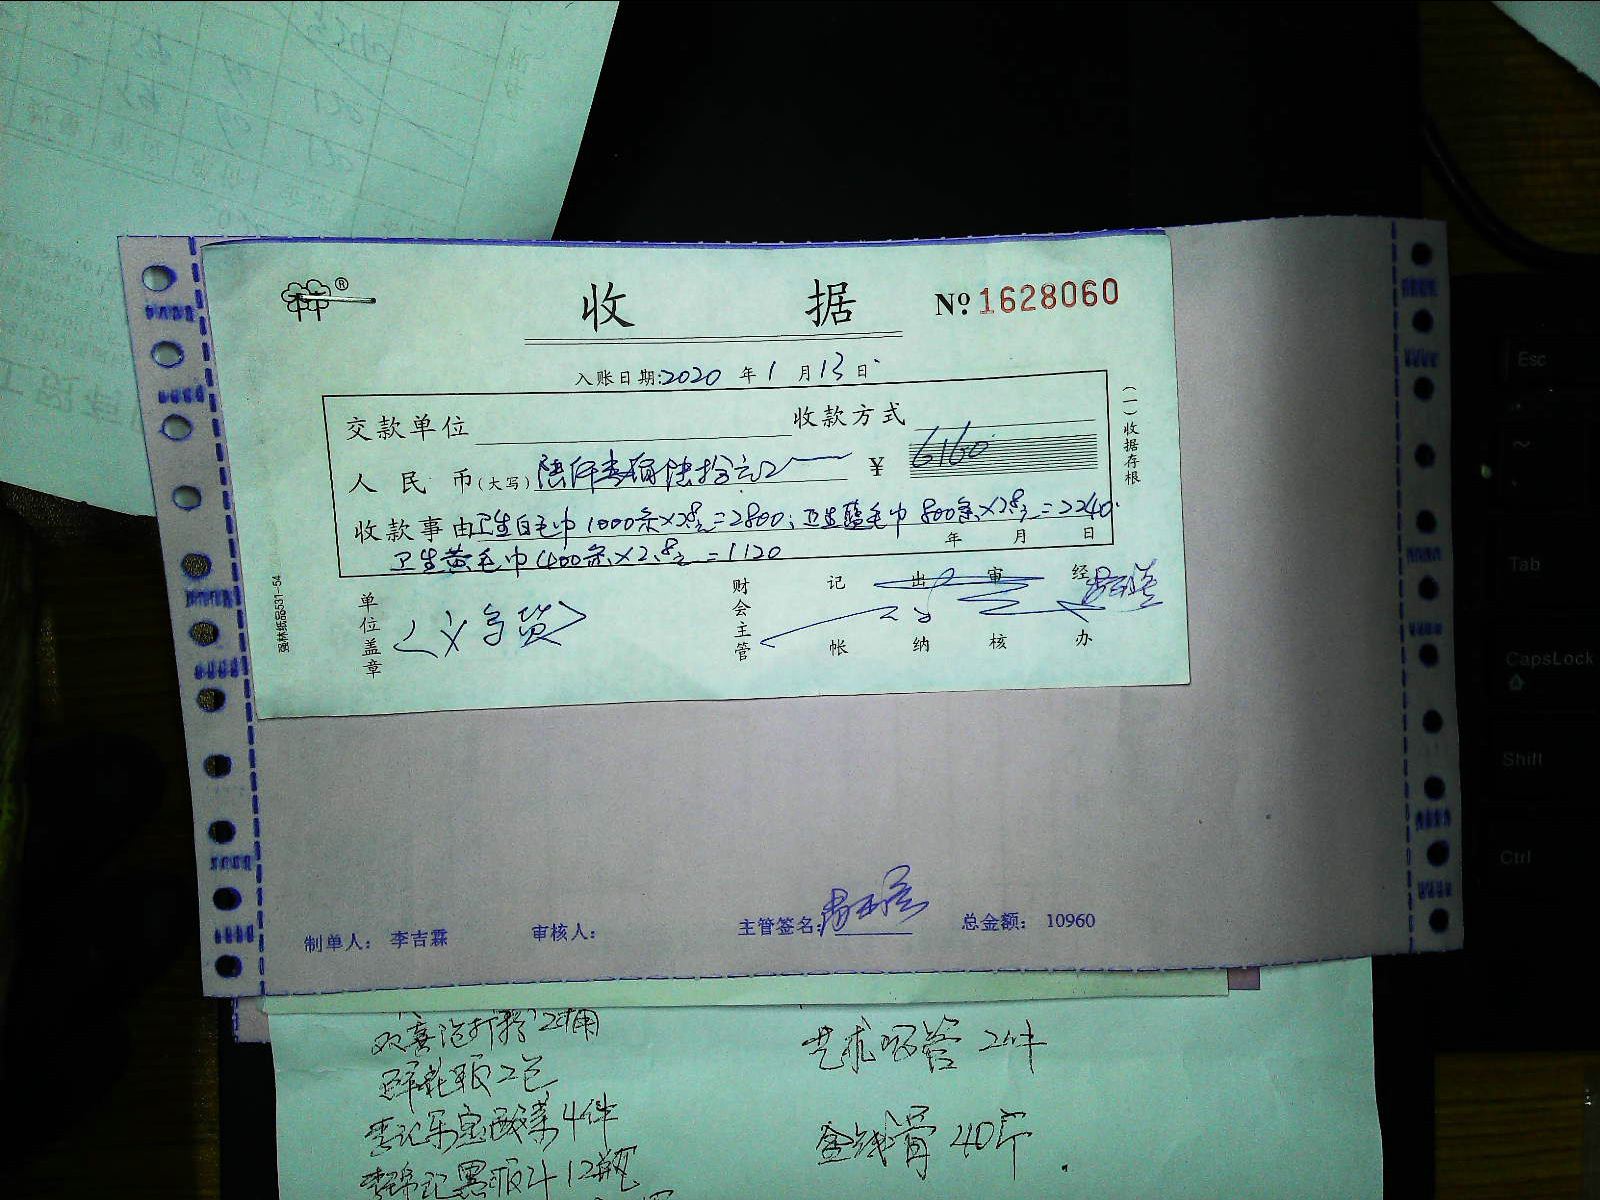 ®
收 据
№ 1628060
入账日期:2020 年 1 月 13 日
交款单位 收款方式
人民币(大写) 陆仟壹佰陆拾元 ¥ 6160
收款事由 卫生白毛巾 1000条×2.8元=2800; 卫生蓝毛巾 800条×2.8元=2240.
年 月 日
卫生黄毛巾 400条×2.8元=1120
(一)收据存根
强林纸品531-54
单位盖章
<义乌货>
财会主管 记帐 出纳 审核 经办
制单人: 李吉霖 审核人: 主管签名: 总金额: 10960
双喜泡打粉 2桶
艺术吸管 2件
李记乐宝酸菜 4件
金钱骨 40斤
12瓶
Esc
~
Tab
CapsLock
Shift
Ctrl